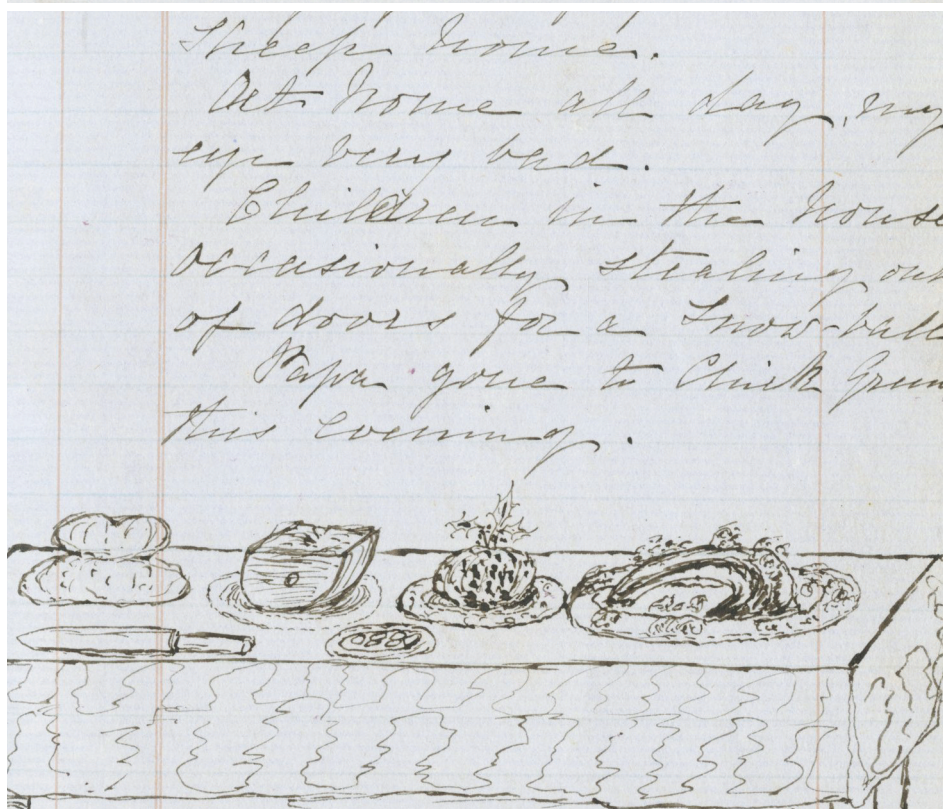 Sheep home.
At home all day, my
eye very bad.
Children in the house
occasionally stealing out
of doors for a Snow-ball
Papa gone to Chick Green
this evening.